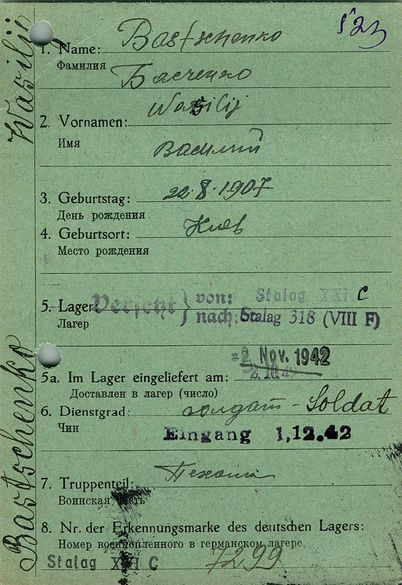 523
1. Name: Bastschenko
Фамилия
Басченко
Wassilij
2. Vornamen:
Имя
Василий
3. Geburtstag: 22.8.1907
День рождения
4. Geburtsort: Киев
Место рождения
5. Lager Versetzt } von: Stalag XXI C
Лагер } nach: Stalag 318 (VIII F)
2. Nov. 1942
5a. Im Lager eingeliefert am:
Доставлен в лагер (число)
6. Dienstgrad: солдат - Soldat
Чин
Eingang 1.12.42
7. Truppenteil: Пехота
Воинская часть
8. Nr. der Erkennungsmarke des deutschen Lagers:
Номер военнопленного в германском лагере
Stalag XXI C 7299
Bastschenko Wasilij